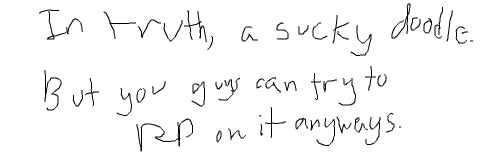 In truth, a sucky doodle.
But you guys can try to
RP on it anyways.